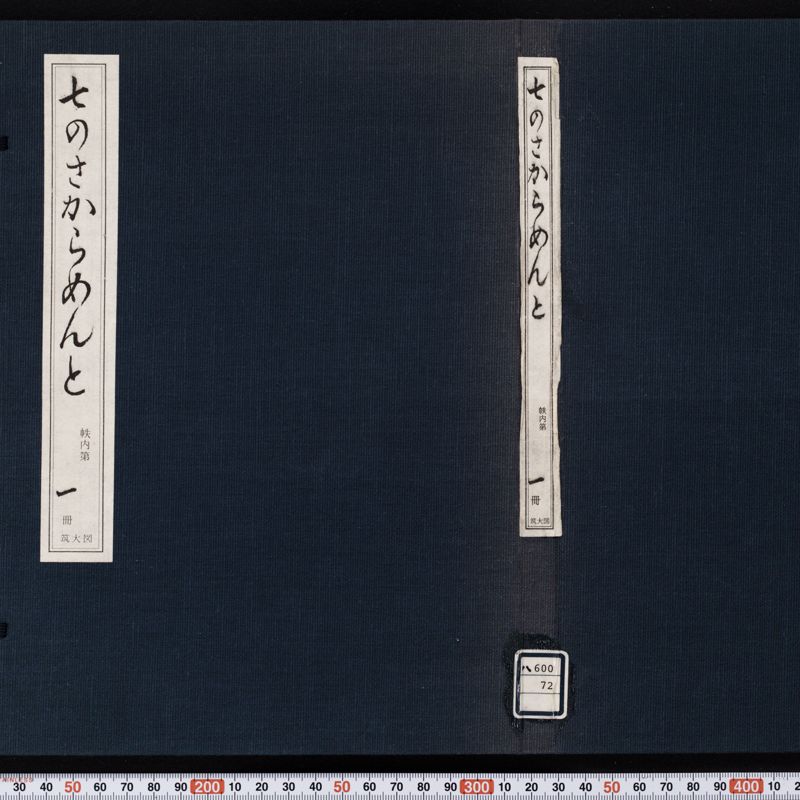 七のさからめんと
帙内第
一
冊
筑大図
七のさからめんと
帙内第
一
冊
筑大図
ハ600
72
STAINLESS
30 40 50 60 70 80 90 200 10 20 30 40 50 60 70 80 90 300 10 20 30 40 50 60 70 80 90 400 10 2